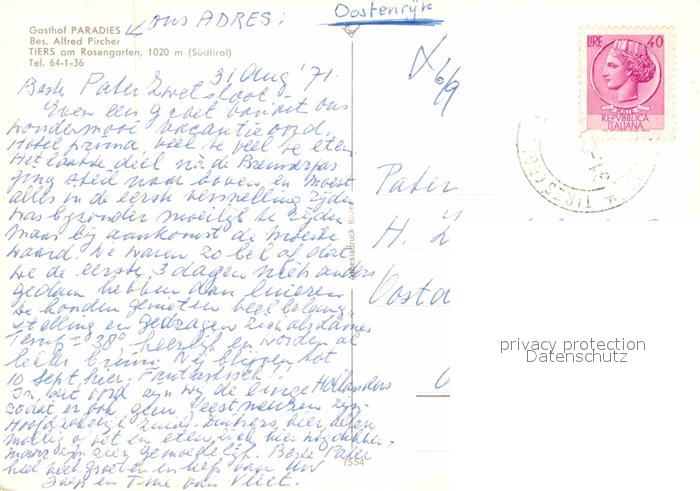 ons ADRES:
Oostenrijk
Gasthof PARADIES
Bes. Alfred Pircher
TIERS am Rosengarten, 1020 m (Südtirol)
Tel. 64-1-36
LIRE 40
POSTE
REPVBBLICA
ITALIANA
TIRES
6/9
31 Aug '71.
Beste Pater Zwetsloot -
Even een groet vanuit ons
wondermooi vacantieoord.
Hotel prima, veel te veel te eten
Het laatste deel v/d Brennerpas
ging steil naar boven en moest
alles in de eerste versnelling rijden
was bijzonder moeilijk te rijden
maar bij aankomst de moeite
waard. We waren zo bekaf dat
we de eerste 3 dagen niets anders
gedaan hebben dan luieren
De honden genieten veel belang-
stelling en gedragen zich als dames
Temp = 38° heerlijk en worden al
lekker bruin. Wij blijven tot
10 Sept. hier. Fantastisch!!
In dit oord zijn wij de enige Hollanders
zodat er ook geen feestneuzen zijn
Hoofdzakelijk Zuid-Duitsers, hier allen
mollig of vet en eten zich hier nog dikker,
maar zijn zeer gemoedelijk. Beste Pater
heel veel groeten en liefs van uw
Jaap en Tine van Vliet.
Pater
H. Z
Oosta
Athesiadruck Bozen
7554
privacy protection
Datenschutz